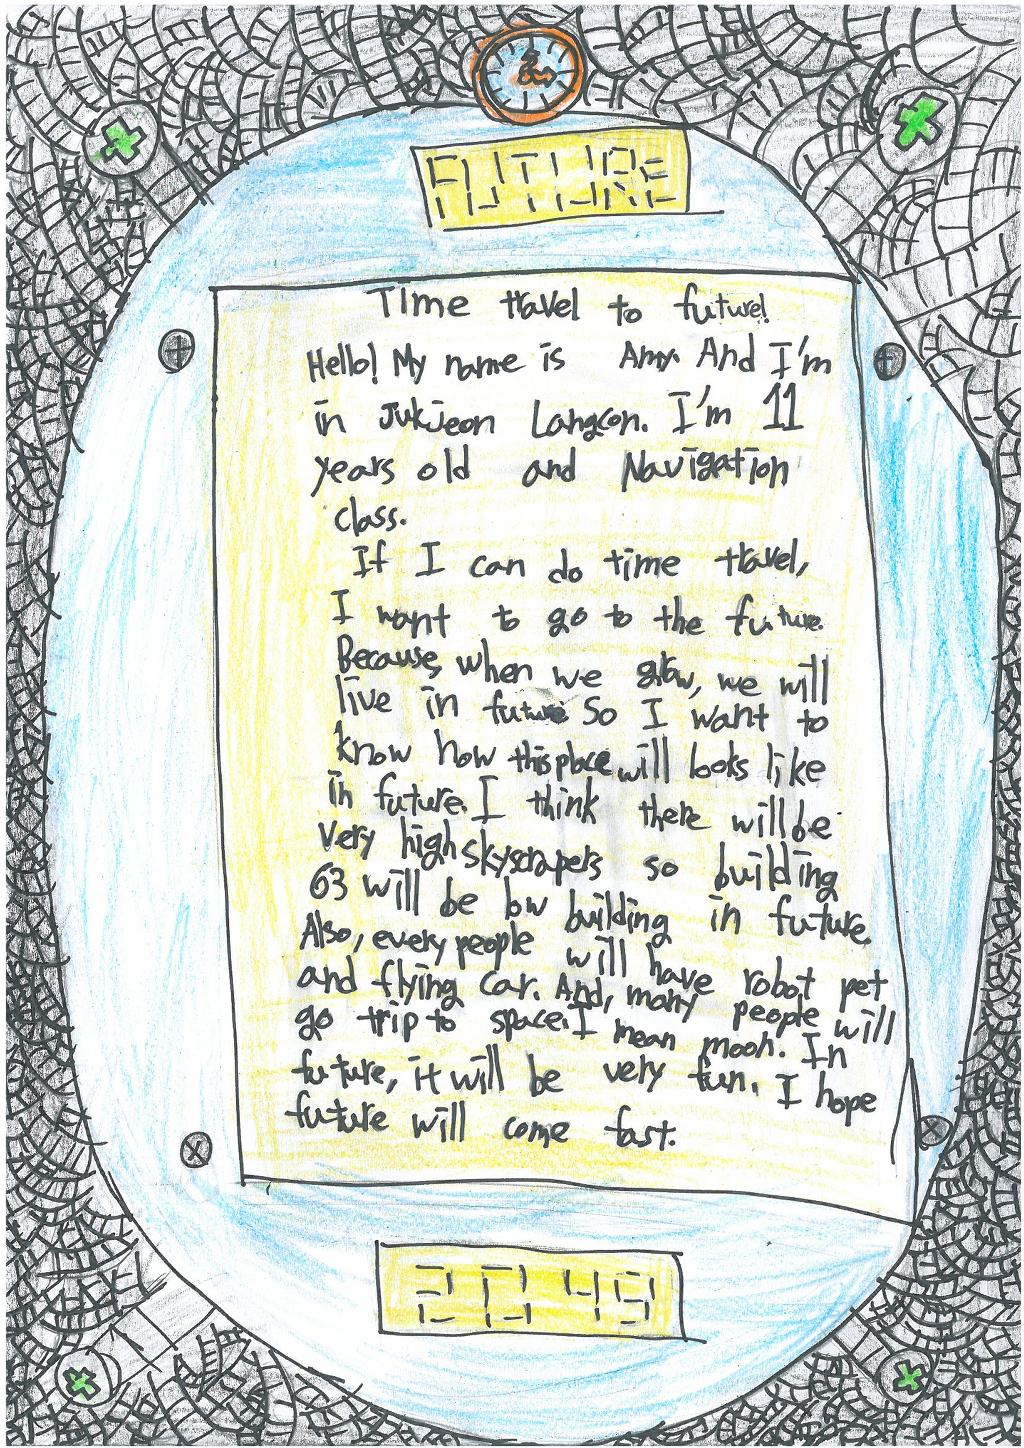 FUTURE
Time travel to future!
Hello! My name is Amy. And I'm
in Jukjeon Langcon. I'm 11
years old and Navigation
class.
If I can do time travel,
I want to go to the future.
Because, when we grow, we will
live in future. So I want to
know how this place will looks like
in future. I think there will be
very high skyscrapers so building
63 will be low building in future.
Also, every people will have robot pet
and flying car. And, many people will
go trip to space. I mean moon. In
future, it will be very fun. I hope
future will come fast.
2049